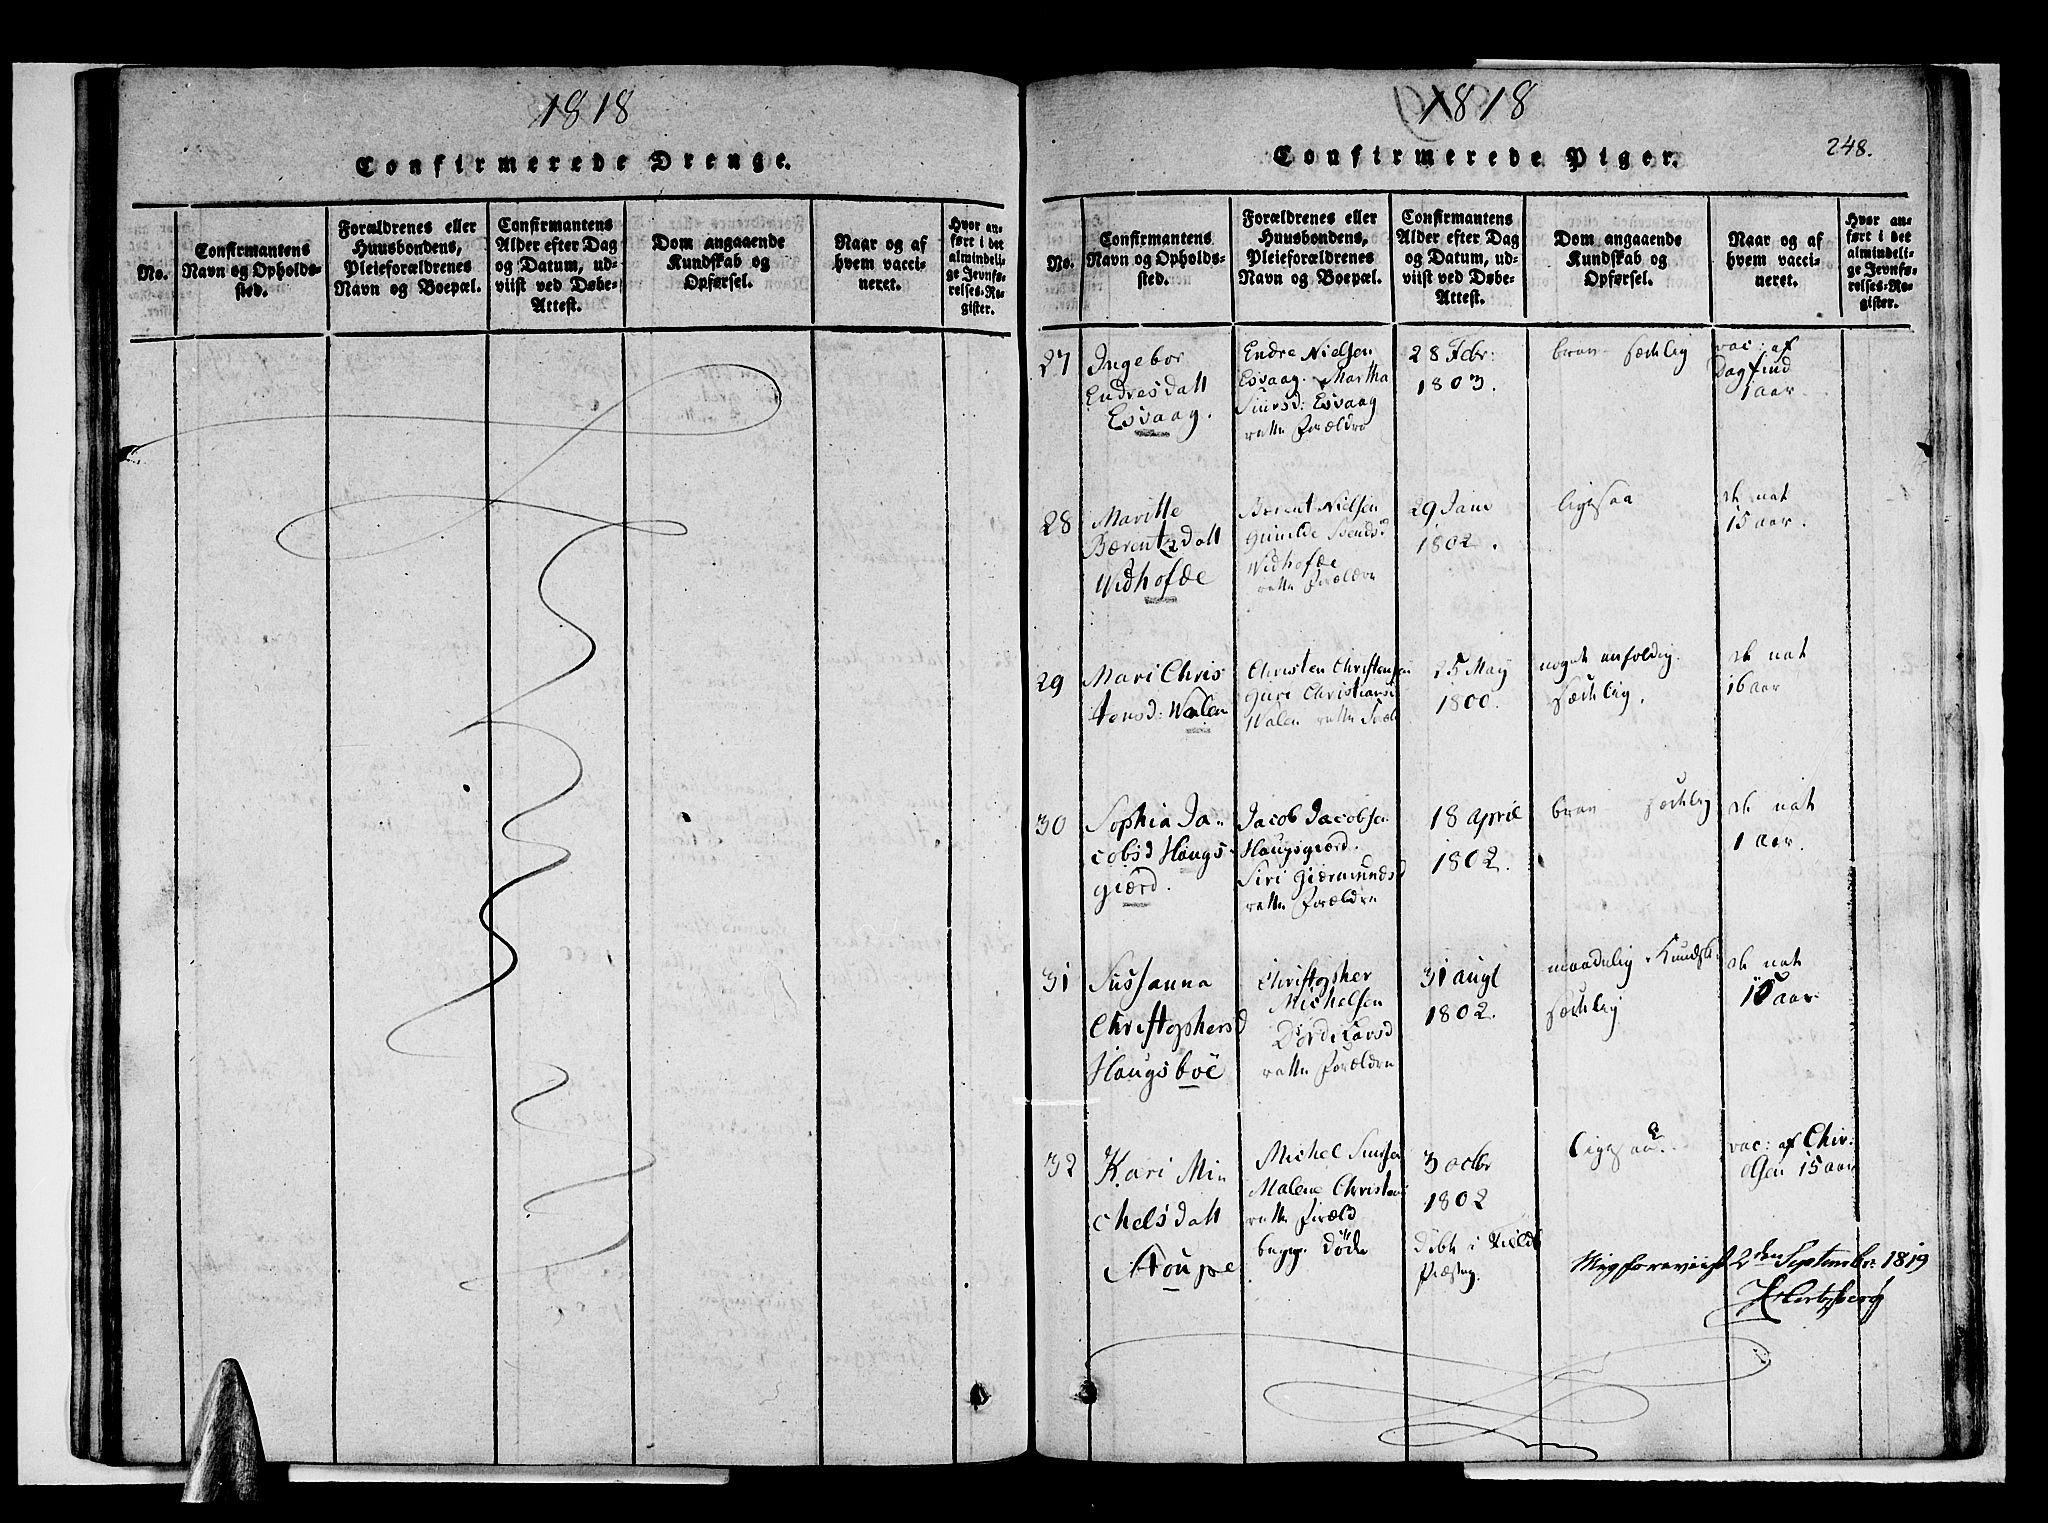 1818
Confirmerede Drenge.
No.
Confirmantens
Navn og Opholds-
sted.
Forældrenes eller
Huusbondens,
Pleieforældrenes
Navn og Boepæl.
Confirmantens
Alder efter Dag
og Datum, ud-
viist ved Døbe-
Attest.
Dom angaaende
Kundskab og
Opførsel.
Naar og af
hvem vacci-
neret.
Hvor an-
ført i det
almindeli-
ge Jevnfø-
relses-Re-
gister.
1818
248.
Confirmerede Piger.
No.
Confirmantens
Navn og Opholds-
sted.
Forældrenes eller
Huusbondens,
Pleieforældrenes
Navn og Boepæl.
Confirmantens
Alder efter Dag
og Datum, ud-
viist ved Døbe-
Attest.
Dom angaaende
Kundskab og
Opførsel.
Naar og af
hvem vacci-
neret.
Hvor an-
ført i det
almindeli-
ge Jevnfø-
relses-Re-
gister.
27
Ingebor
Endresdatt
Esvaag.
Endre Nielsen
Esvaag. Martha
Siursd: Esvaag
rette Forældre
28 Febr:
1803.
brav sædelig
vac: af
Dagfind
1 aar.
28
Maritte
Bærentzdatt
Nidhofde
Berent Nielsen
Gunilde Svendsd
Nidhofde
rette Forældre
29 Janv
1802.
ligesaa
de nat
15 aar.
29
Mari Chris
tensd: Walen
Christen Christensen
Guri Christiansd
Walen rette Foræld
25 May
1800.
noget enfoldig.
sædelig.
de nat
16 aar
30
Sophia Ja-
cobsd Haugs-
giærd.
Jacob Jacobsen
Haugsgiærd.
Siri Giærmundsd
rette Forældre
18 april
1802.
brav sædelig
de nat
1 Aar.
31
Sussanna
Christophersd
Haugsböe
Christopher
Michelsen
rette Forældre
31 augt
1802.
maadelig Kundsk
sædelig
de nat
15 aar
32
Kari Mi-
chelsdatt
Stoupe
Michel Siursen
Malene Christens
rette Foræld
begge døde
3 octbr
1802
Døbt i
Præsteg.
ligesaa.
vac: af Chir:
Olsen 15 aar
Mig foreviist 2den September 1819
Hertzberg